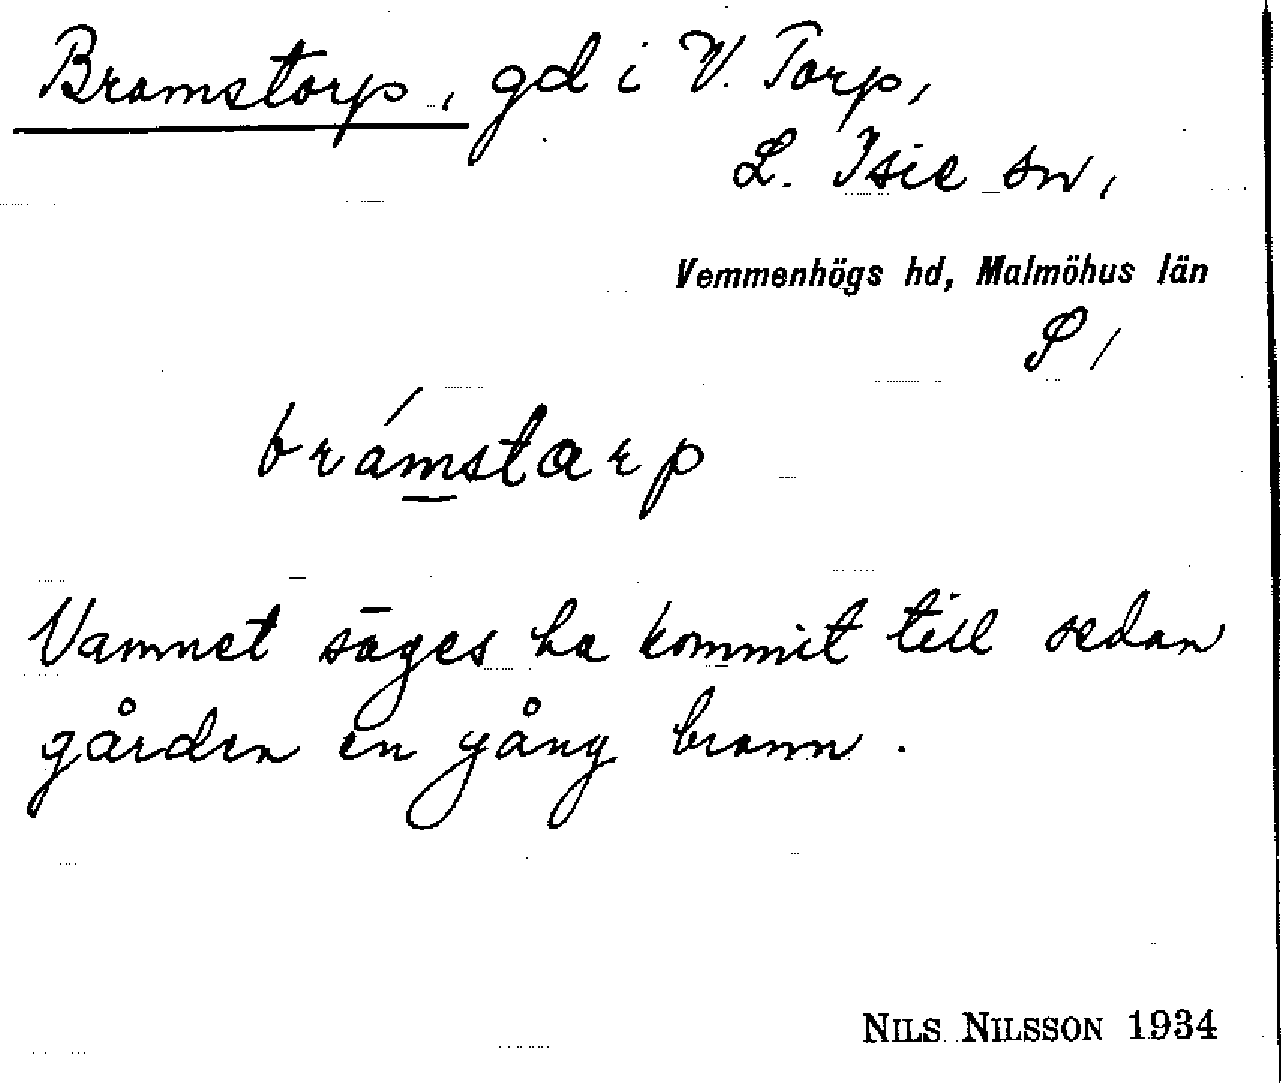 Bramstorp, gd i V. Torp,
L. Isie sn,
Vemmenhögs hd, Malmöhus län
brámstarp
Namnet säges ha kommit till sedan
gården en gång brann.
NILS NILSSON 1934